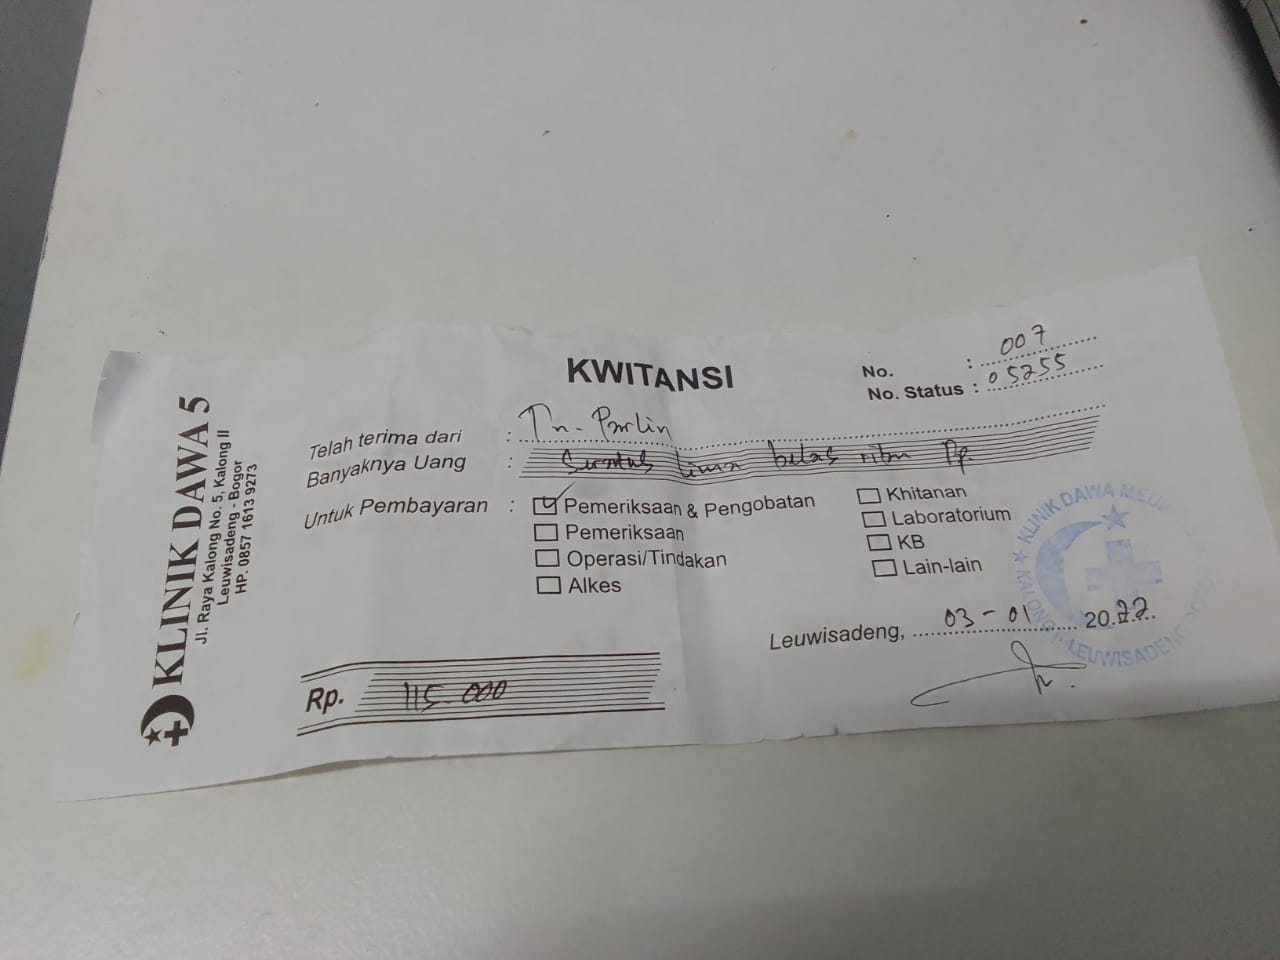 KLINIK DAWA 5
Jl. Raya Kalong No. 5, Kalong II
Leuwisadeng - Bogor
HP. 0857 1613 9273
KWITANSI
No. : 007
No. Status : 05255
Telah terima dari : Tn. Parlin
Banyaknya Uang : Seratus lima belas ribu Rp.
Untuk Pembayaran : Pemeriksaan & Pengobatan
Pemeriksaan
Operasi/Tindakan
Alkes
Khitanan
Laboratorium
KB
Lain-lain
Leuwisadeng, 03-01 2022
Rp. 115.000
KLINIK DAWA
LEUWISADENG